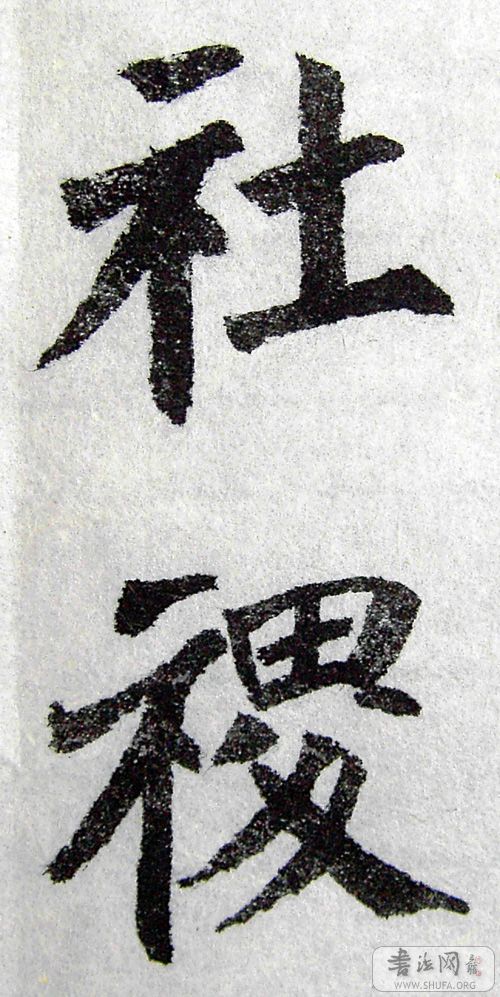 社禝
書法网
WWW.SHUFA.ORG